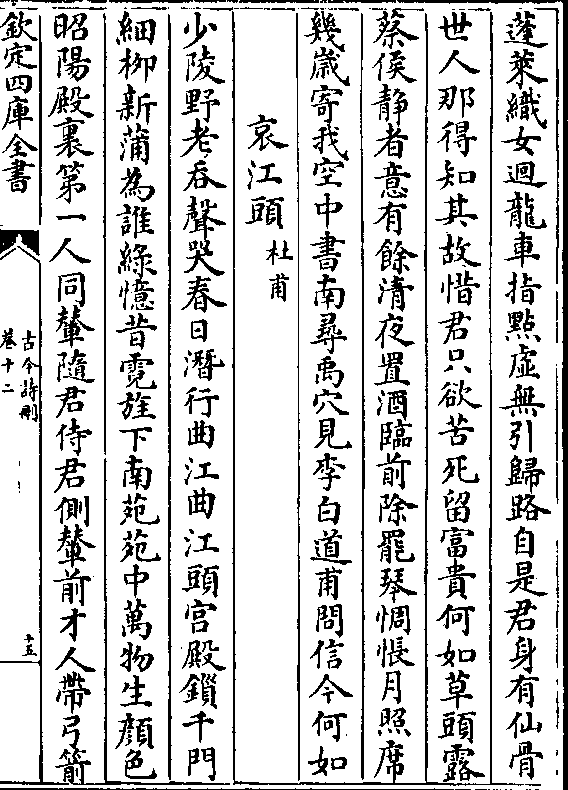 蓬萊織女迴龍車指點虛無引歸路自是君身有仙骨
世人那得知其故惜君只欲苦死留富貴何如草頭露
蔡侯靜者意有餘清夜置酒臨前除罷琴惆悵月照席
幾歲寄我空中書南尋禹穴見李白道甫問信今何如
哀江頭 杜甫
少陵野老吞聲哭春日潛行曲江曲江頭宮殿鎖千門
細柳新蒲為誰綠憶昔霓旌下南苑苑中萬物生顏色
昭陽殿裏第一人同輦隨君侍君側輦前才人帶弓箭
欽定四庫全書
古今詩刪
卷十二
十五